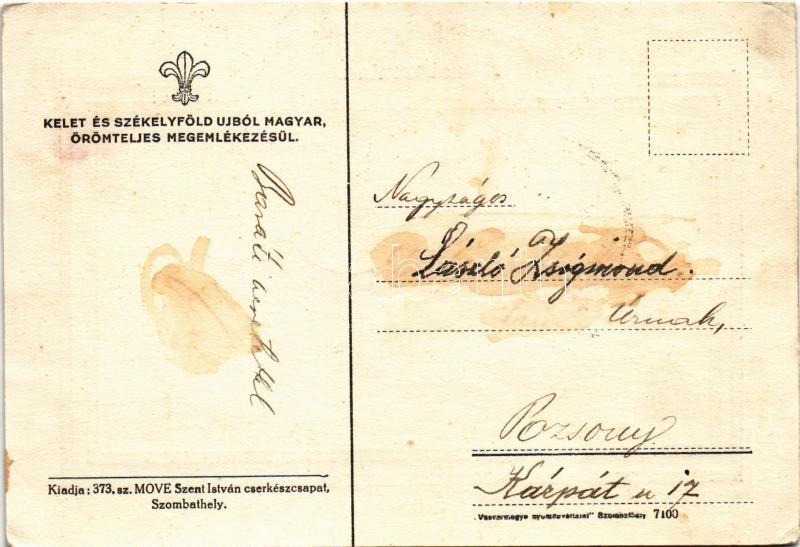 KELET ÉS SZÉKELYFÖLD UJBÓL MAGYAR,
ÖRÖMTELJES MEGEMLÉKEZÉSÜL.
Baráti szeretettel
Kiadja: 373. sz. MOVE Szent István cserkészcsapat,
Szombathely.
Nagyságos
László Zsigmond.
Úrnak,
Pozsony
Kárpát u 17
„Vasvarmegye nyomdavállalat" Szombathely 7100